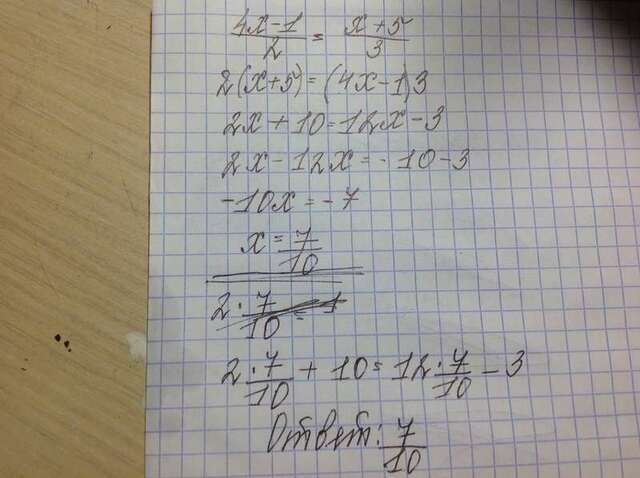 4x-1/2 = x+5/3
2(x+5)=(4x-1)3
2x+10=12x-3
2x-12x=-10-3
-10x=-7
x=7/10
2·7/10=1
2·7/10+10=12·7/10-3
Ответ: 7/10